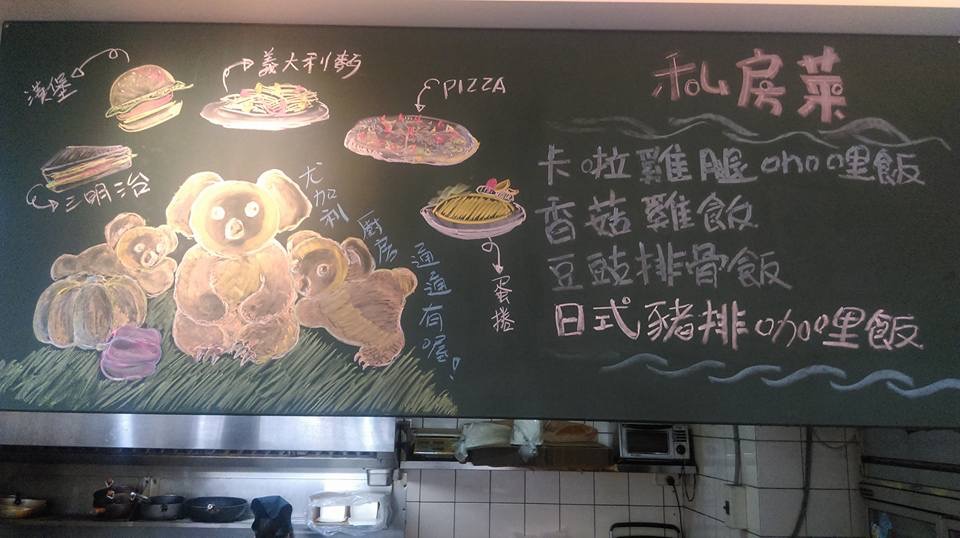 漢堡
義大利麵
PIZZA
三明治
尤加利
廚房
通通有喔!
蛋捲
私房菜
卡啦雞腿咖哩飯
香菇雞飯
豆豉排骨飯
日式豬排咖哩飯